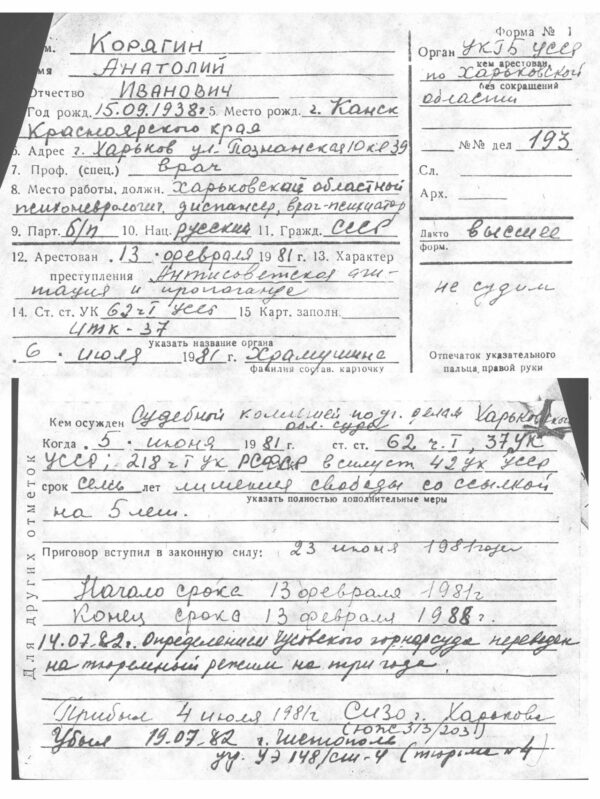 Форма № 1
м. Корягин
мя Анатолий
Отчество Иванович
Год рожд. 15.09.1938г 5. Место рожд. г. Канск
Красноярского края
6. Адрес г. Харьков ул. Познанская 10 кв 39
7. Проф. (спец.) врач
8. Место работы, должн. Харьковский областной
психоневрологич. диспансер, врач-психиатр
9. Парт. б/п 10. Нац. русский 11. Гражд. СССР
12. Арестован . 13 . февраля 1981 г. 13. Характер
преступления Антисоветская аги-
тация и пропаганда
14. Ст. ст. УК 62 ч I УССР 15 Карт. заполн.
ИТК-37
указать название органа
. 6 . июля 1981 г. Храмушина
фамилия состав. карточку
Орган УКГБ УССР
кем арестован
по Харьковской
без сокращений
области
№№ дел 193
Сл.
Арх.
Дакто высшее
форм.
не судим
Отпечаток указательного
пальца правой руки
Для других отметок
Кем осужден Судебной коллегией по уг. делам Харьковского
обл. суда
Когда . 5 . июня 1981 г. ст. ст. 62 ч. I, 37 УК
УССР; 218 ч I УК РСФСР в силу ст 42 УК УССР
срок семь лет лишения свободы со ссылкой
указать полностью дополнительные меры
на 5 лет.
Приговор вступил в законную силу: 23 июня 1981 года
Начало срока 13 февраля 1981г
Конец срока 13 февраля 1988 г.
14.07.82г. Определением Чусовского горнарсуда переведен
на тюремный режим на три года.
Прибыл 4 июля 1981г СИЗО г. Харькова
(ЮЖ 313/203)
Убыл 19.07.82 г. Чистополь
уч. УЭ 148/ст-4 (тюрьма №4)